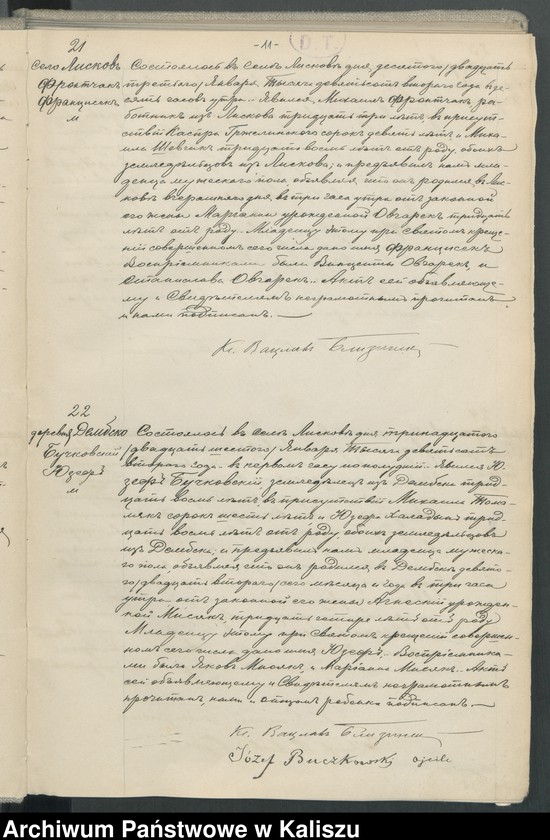 -11-
D. T.
21
село Лисковъ
Фронтчакъ
Францискъ
м
Состоялось въ селѣ Лисковѣ дня десятаго /двадцать
третьяго/ Января тысяча девятьсотъ второго года въ де-
сять часовъ утра. Явился Михаилъ Фронтчакъ ра-
ботникъ изъ Лискова тридцати трехъ лѣтъ въ присут-
ствіи Каспра сорокъ девять лѣтъ и Миха-
ила тридцать восемь лѣтъ отъ роду, обоихъ
земледѣльцовъ изъ Лискова; и предъявилъ намъ мла-
денца мужескаго пола объявляя, что онъ родился въ Лис-
ковѣ вчерашняго дня, въ три часа утра отъ законной
его жены Маріанны урожденной Овчарекъ тридцать
лѣтъ отъ роду. Младенцу этому при Святомъ креще-
ніи совершенномъ сего числа дано имя Францискъ
Воспріемниками были Винценты Овчарекъ, и
Станислава Овчарекъ. Актъ сей объявляюще-
му и Свидѣтелямъ неграмотнымъ прочитанъ
и нами подписанъ. —
Кс. Вацлавъ Близинскій
22
деревня Дембско
Бучковскій
Юзефъ
м
Состоялось въ селѣ Лисковѣ дня тринадцатого
/двадцать шестого/ Января тысяча девятьсотъ
второго года въ первомъ часу пополудни. Явился Ю-
зефъ Бучковскій, земледѣлецъ изъ Дембска трид-
цать восемь лѣтъ, въ присутствіи Михаила
сорокъ шесть лѣтъ и Юзефа трид-
цать восемь лѣтъ отъ роду, обоихъ земледѣльцовъ
изъ Дембска; и предъявилъ намъ младенца мужеска-
го пола объявляя что онъ родился въ Дембскѣ девято-
го /двадцать второго/ сего мѣсяца и года въ три часа
утра отъ законной его жены Агнешки урожден-
ной Мисякъ, тридцать четыре лѣтъ отъ роду
Младенцу этому при Святомъ крещеніи совершен-
номъ сего числа дано имя Юзефъ. Воспріемника-
ми были Яковъ Мисякъ, и Маріанна Мисякъ. Актъ
сей объявляющему и Свидѣтелямъ неграмотнымъ
прочитанъ, нами и отцомъ ребенка подписанъ. —
Кс. Вацлавъ Близинскій
Józef Buczkowski ojciec
Archiwum Państwowe w Kaliszu